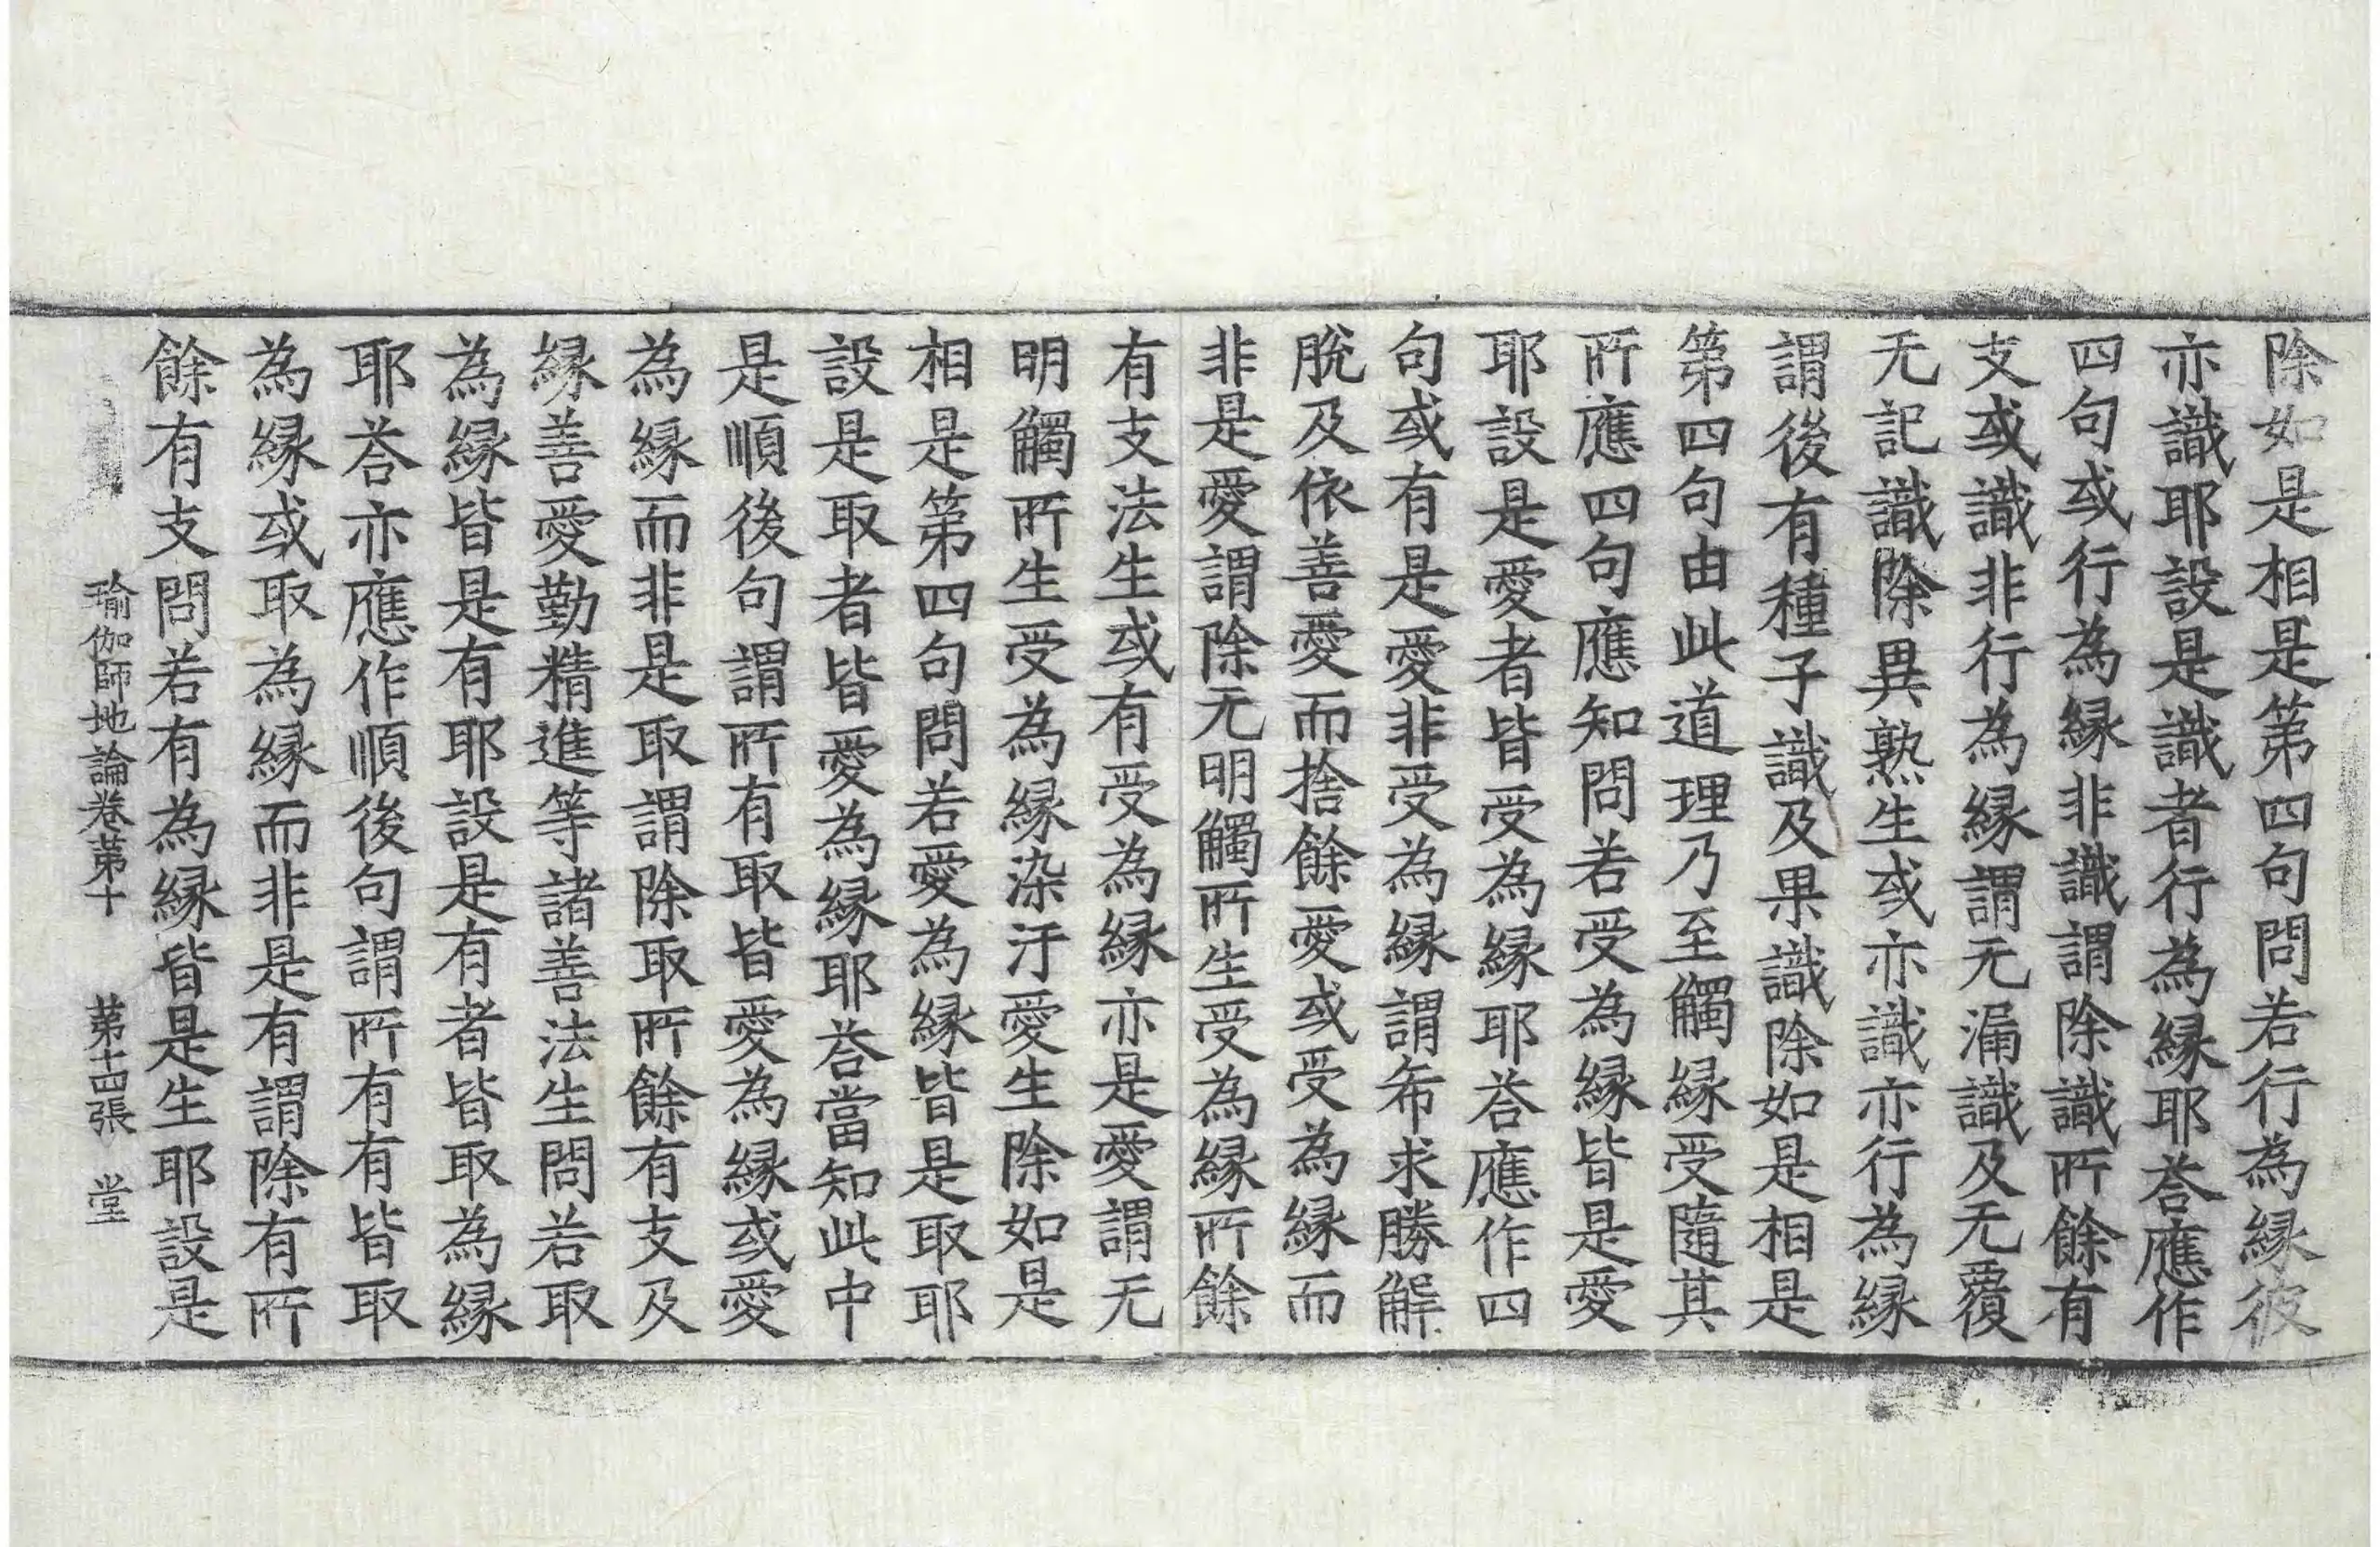 除如是相是第四句問若行為縁彼
亦識耶設是識者行為縁耶荅應作
四句或行為縁非識謂除識所餘有
支或識非行為縁謂无漏識及无覆
无記識除異熟生或亦識亦行為縁
謂後有種子識及果識除如是相是
第四句由此道理乃至觸縁受隨其
所應四句應知問若受為縁皆是愛
耶設是愛者皆受為縁耶荅應作四
句或有是愛非受為縁謂希求勝解
脫及依善愛而捨餘愛或受為縁而
非是愛謂除无明觸所生受為縁所餘
有支法生或有受為縁亦是愛謂无
明觸所生受為縁染汙愛生除如是
相是第四句問若愛為縁皆是取耶
設是取者皆愛為縁耶荅當知此中
是順後句謂所有取皆愛為縁或愛
為縁而非是取謂除取所餘有支及
縁善愛勤精進等諸善法生問若取
為縁皆是有耶設是有者皆取為縁
耶荅亦應作順後句謂所有有皆取
為縁或取為縁而非是有謂除有所
餘有支問若有為縁皆是生耶設是
瑜伽師地論卷第十 第十四張 堂